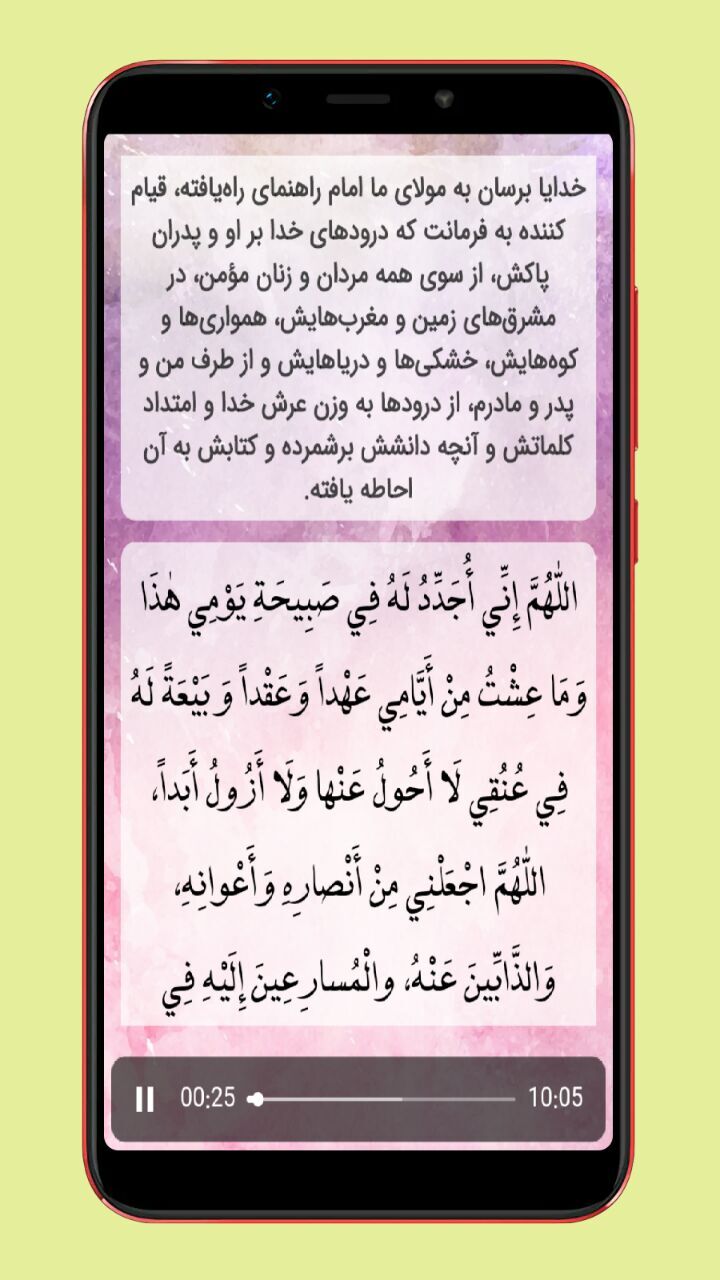 خدایا برسان به مولای ما امام راهنمای راه‌یافته، قیام
کننده به فرمانت که درودهای خدا بر او و پدران
پاکش، از سوی همه مردان و زنان مؤمن، در
مشرق‌های زمین و مغرب‌هایش، همواری‌ها و
کوه‌هایش، خشکی‌ها و دریاهایش و از طرف من و
پدر و مادرم، از درودها به وزن عرش خدا و امتداد
کلماتش و آنچه دانشش برشمرده و کتابش به آن
احاطه یافته.
اللّٰهُمَّ إِنِّي أُجَدِّدُ لَهُ فِي صَبِيحَةِ يَوْمِي هٰذَا
وَمَا عِشْتُ مِنْ أَيَّامِي عَهْداً وَعَقْداً وَبَيْعَةً لَهُ
فِي عُنُقِي لَا أَحُولُ عَنْها وَلَا أَزُولُ أَبَداً،
اللّٰهُمَّ اجْعَلْنِي مِنْ أَنْصارِهِ وَأَعْوانِهِ،
وَالذَّابِّينَ عَنْهُ، والْمُسارِعِينَ إِلَيْهِ فِي
00:25 10:05